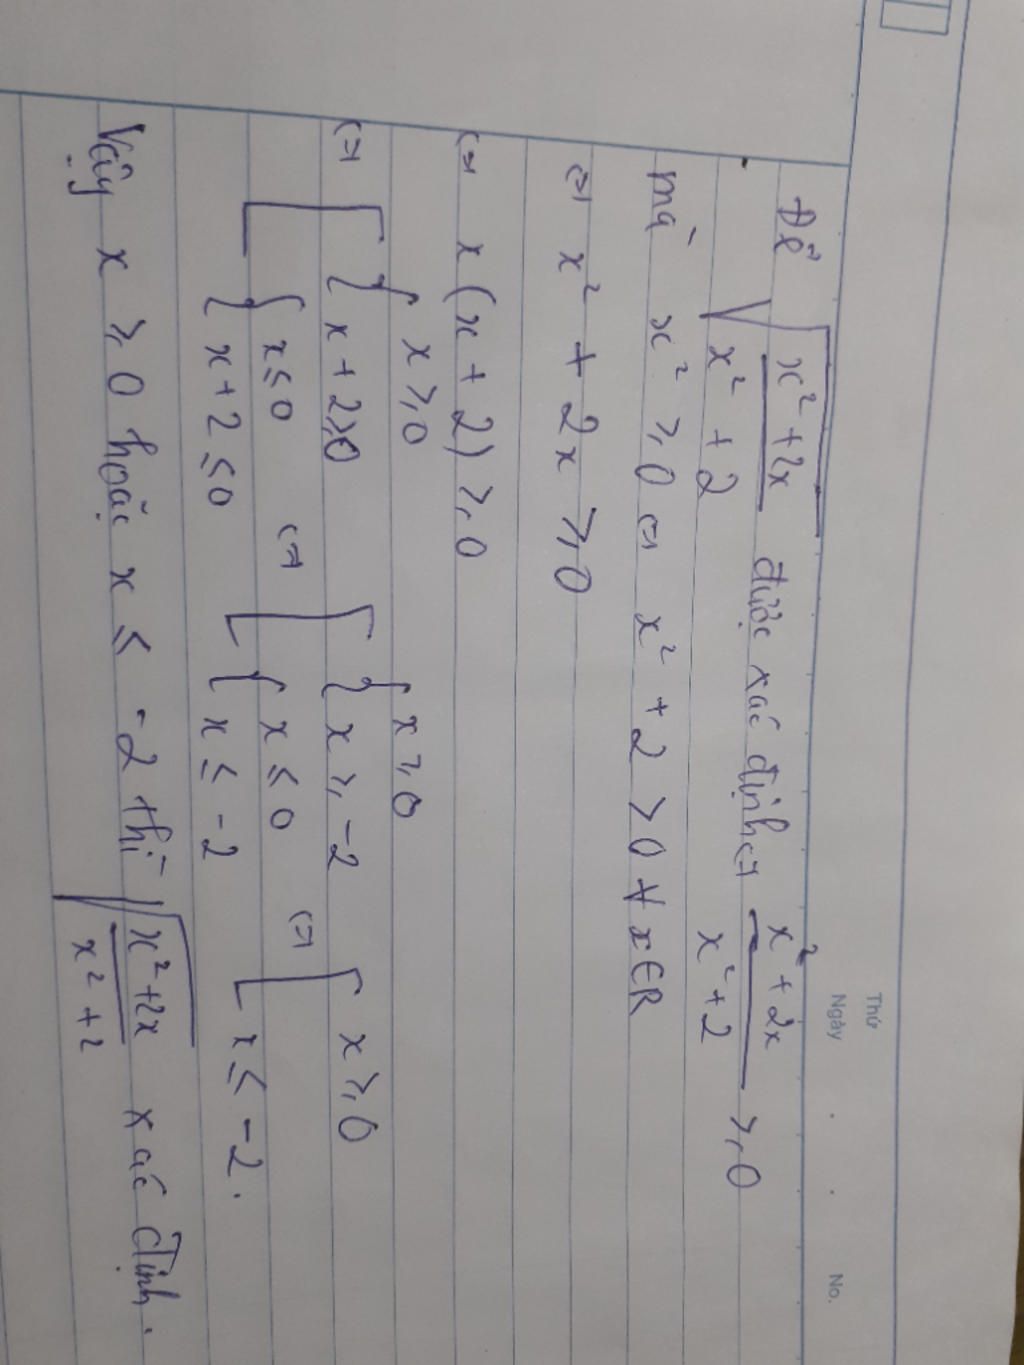 Thứ
Ngày . . No.
Để √((x² + 2x)/(x² + 2)) được xác định ⇔ (x² + 2x)/(x² + 2) ≥ 0
mà x² ≥ 0 ⇔ x² + 2 > 0 ∀ x ∈ R
⇔ x² + 2x ≥ 0
⇔ x(x + 2) ≥ 0
⇔ [ { x ≥ 0 ; x + 2 ≥ 0 ; { x ≤ 0 ; x + 2 ≤ 0 ⇔ [ { x ≥ 0 ; x ≥ -2 ; { x ≤ 0 ; x ≤ -2 ⇔ [ x ≥ 0 ; x ≤ -2.
Vậy x ≥ 0 hoặc x ≤ -2 thì √((x² + 2x)/(x² + 2)) xác định.